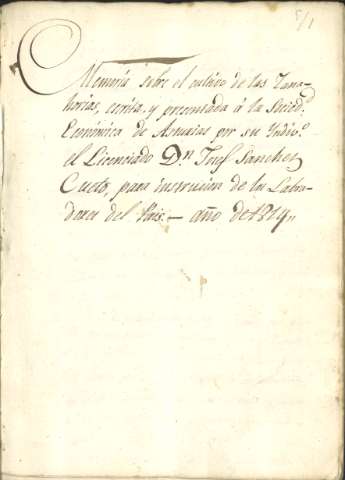 5/1
Memoria sobre el cultivo de las Zana-
horias, escrita, y presentada á la Socied.d
Económica de Asturias por su Yndiv.o
el Licenciado Dn. Josef Sanchez
Cueto, para instrucion de los Labra-
dores del Pais. — año de 1819,,